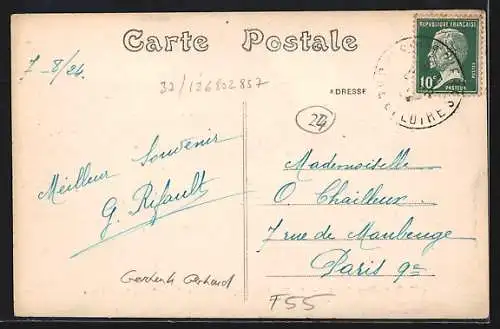 Carte Postale
7-8/24.
32/126802857
*DRESSE
24
REPUBLIQUE FRANÇAISE
10c
POSTES
PASTEUR
LOIRE
Meilleur Souvenir
G. Rifault
Mademoiselle
O. Chailleux.
7 rue de Maubeuge
Paris 9e
Gerhard
F55